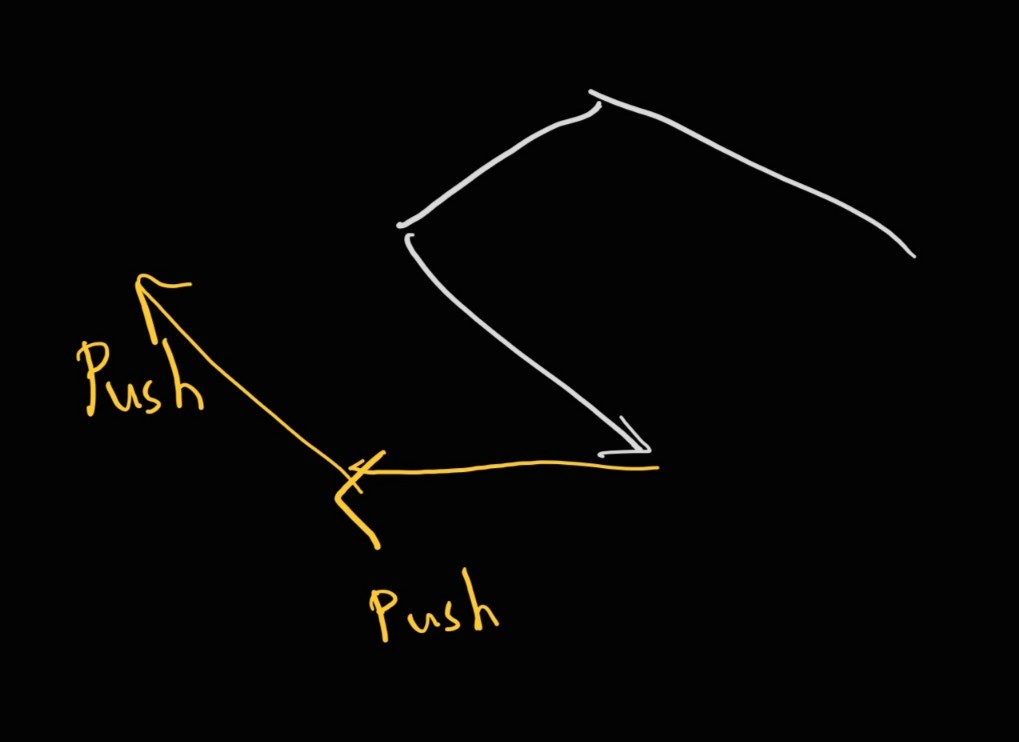 Push
Push